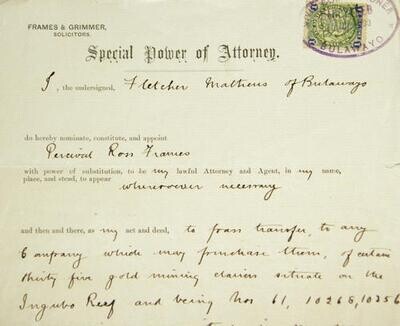 FRAMES & GRIMMER,
SOLICITORS.
BULAWAYO
Special Power of Attorney.
I, the undersigned, Fletcher Mathens of Bulawayo
do hereby nominate, constitute, and appoint
Percival Ross Frames
with power of substitution, to be my lawful Attorney and Agent, in my name,
place, and stead, to appear
wheresoever necessary
and then and there, as my act and deed, to pass transfer, to any
Company which may purchase them, of certain
thirty five gold mining claims situate on the
Ingubo Reef and being Nos 61, 10265, 10356